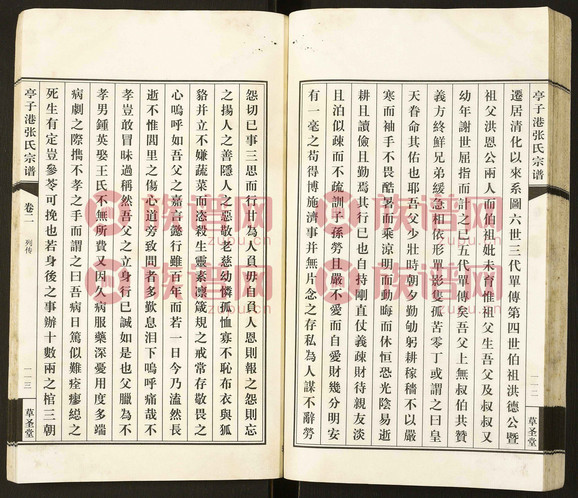 亭子港张氏宗谱
一一二
草圣堂
遷居清化以來系圖六世三代單傳第四世伯祖洪德公暨
祖父洪恩公兩人而伯祖妣未育惟祖父生吾父及叔叔又
幼年謝世屈指而計之已五代單傳矣吾父上無叔伯共贊
義方終鮮兄弟緩急相依形單影隻孤苦零丁或謂之曰皇
天眷命其佑也耶吾父少壯時朝夕勤劬躬耕稼穡不以嚴
寒而袖手不畏酷暑而乘涼明而動晦而休恒恐光陰易逝
耕且讀儉且勤焉其行已也自持剛直仗義疎財待親友淡
且泊似疎而不疏訓子孫勞且嚴不愛而自愛財幾分明安
有一毫之苟得博施濟事并無片念之存私為人謀不辭勞
怨切已事三思而行甘為人負毋自負人恩則報之怨則忘
之揚人之善隱人之惡敬老慈幼憐孤恤寡不恥布衣與狐
貉并立不嫌蔬菜而恣殺生靈素凛箴規之戒常存敬畏之
心嗚呼如吾父之嘉言懿行雖百年而若一日今乃溘然長
逝不惟閭里之傷心道旁致問者多歎息泪下嗚呼痛哉不
孝豈敢冒昧過稱然吾父之立身行已誠如是也父臘為不
孝男鍾英娶王氏不無所費又因久病服藥深憂用度多端
病劇之際擕不孝之手而謂之曰吾病日篤似難痊瘳縂之
死生有定豈參苓可挽也若身後之事辦十數兩之棺三朝
亭子港张氏宗谱
卷二
列传
一一三
草圣堂
族谱网
zupu.cn
族谱网
zupu.cn
族谱网
zupu.cn
族谱网
zupu.cn